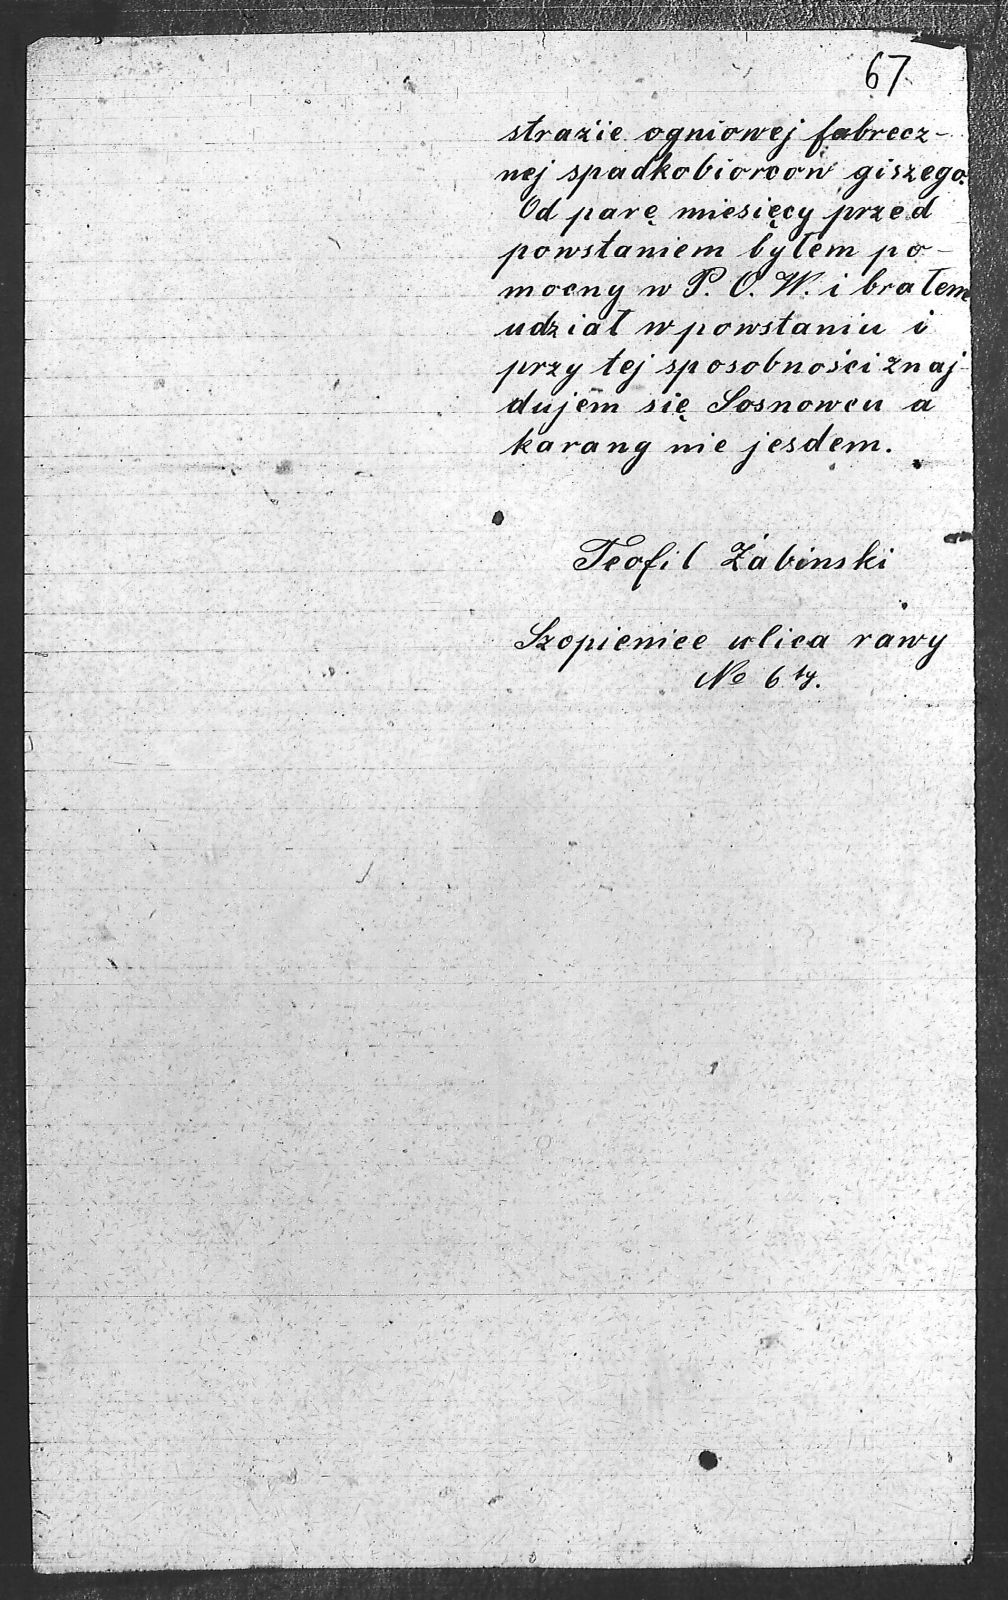 67
straźie ogniowej fabrecz-
nej spadkobiorców giszego.
Od parę miesięcy przed
powstaniem byłem po-
mocny w P. O. W. i brałem
udział w powstaniu i
przy tej sposobności znaj-
dujem się Sosnowcu a
karany nie jesdem.
Teofil Żabinski
Szopieniee ulica rawy
No 6 ty.